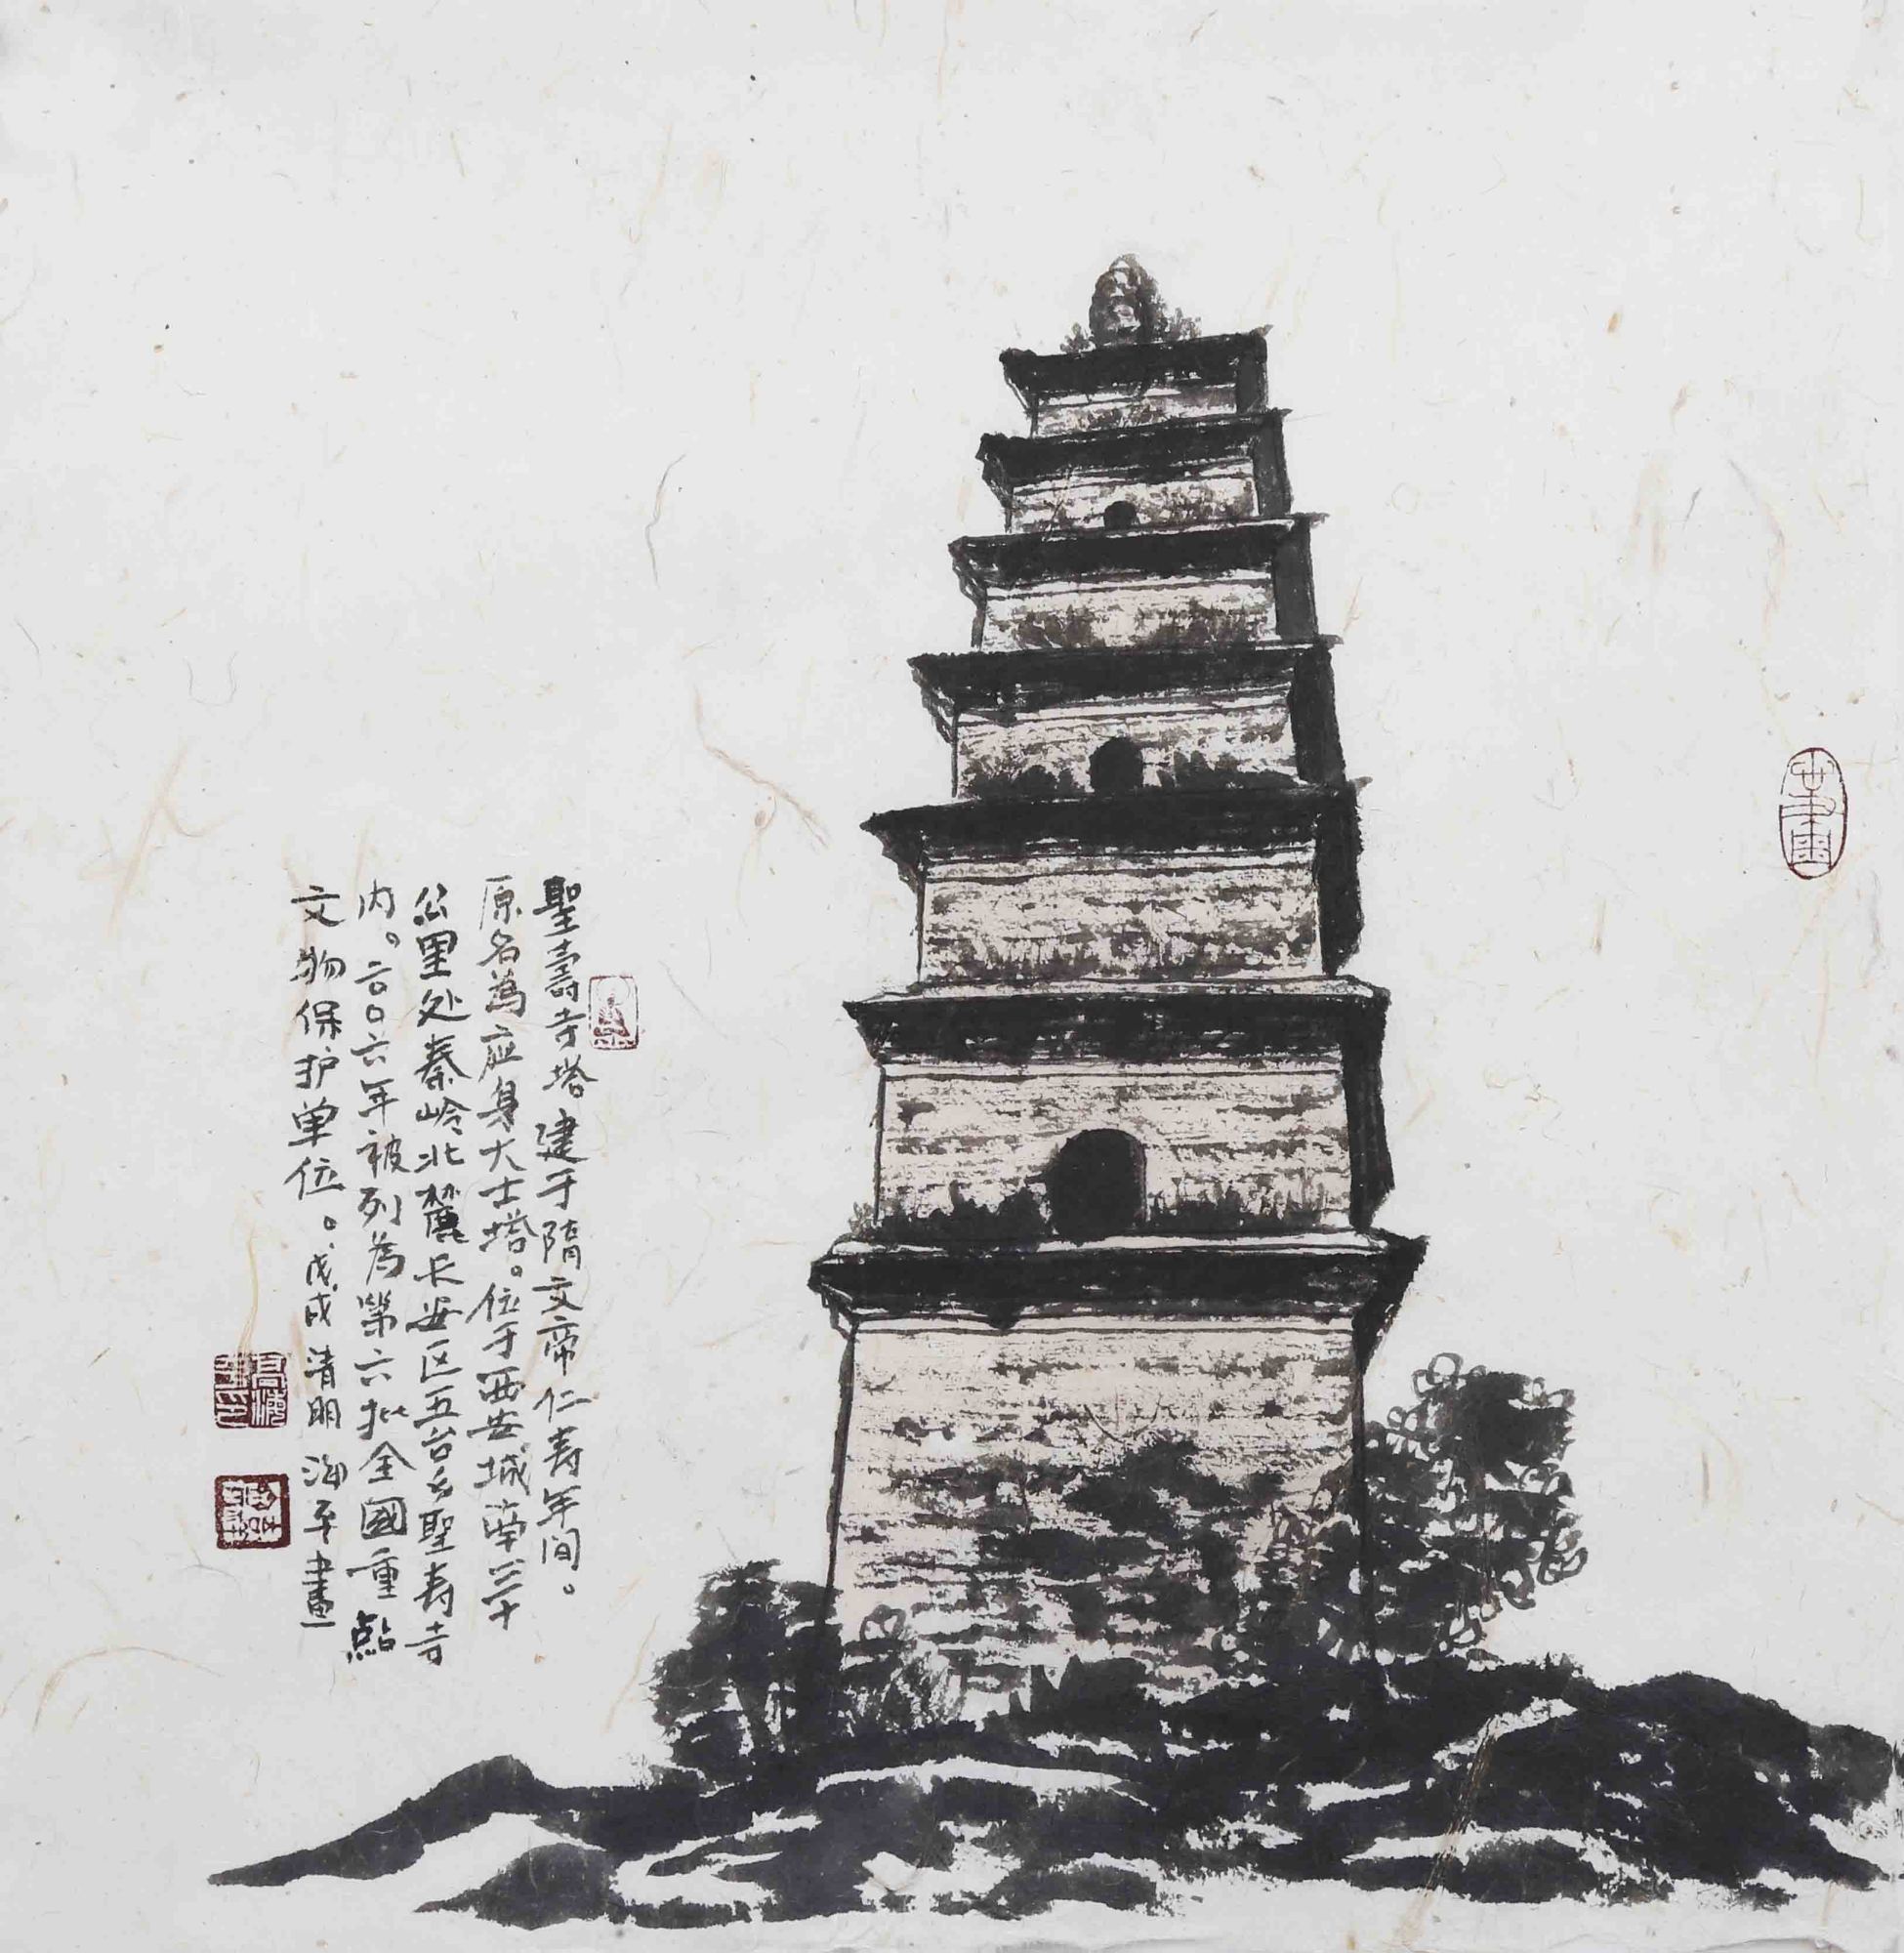 聖壽寺塔建于隋文帝仁寿年间。
原名為应身大士塔。位于西安城南三十
公里处秦岭北麓长安区五台乡聖寿寺
内。二〇〇六年被列为第六批全國重點
文物保护单位。戊戌清明海平畫